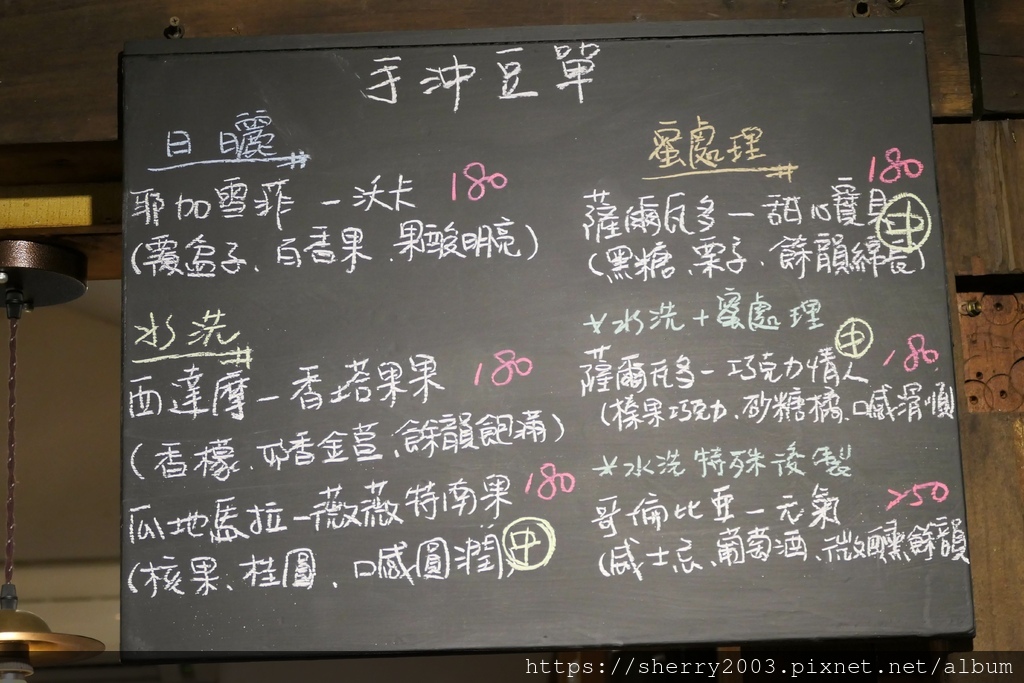 手沖豆單
日曬
耶加雪菲－沃卡 180
(覆盆子、百香果、果酸明亮)
水洗
西達摩－香塔果果 180
(香檬、茚香金萱、餘韻飽滿)
瓜地馬拉－薇薇特南果 180
(核果、桂圓、口感圓潤) 中
蜜處理
180
薩爾瓦多－甜心寶貝 中
(黑糖、栗子、餘韻綿長)
*水洗+蜜處理
薩爾瓦多－巧克力情人 中 180
(榛果巧克力、砂糖橘、口感滑順)
*水洗特殊後製
哥倫比亞－元氣 250
(威士忌、葡萄酒、微醺餘韻
https://sherry2003.pixnet.net/album